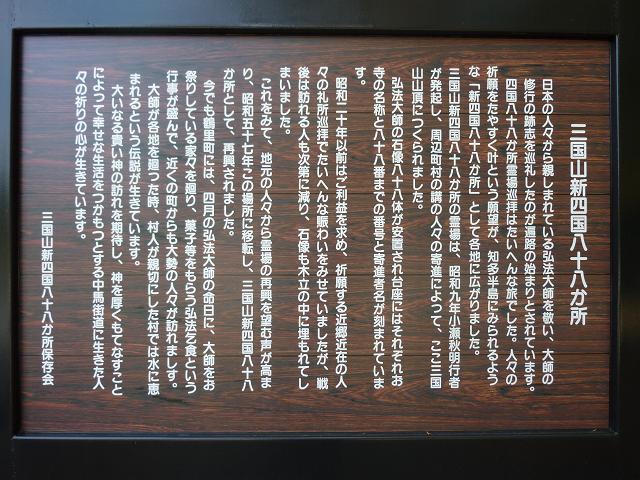 三国山新四国八十八か所
日本の人々から親しまれている弘法大師を敬い、大師の
修行の跡志を巡礼したのが遍路の始まりとされています。
四国八十八か所霊場巡拝はたいへんな旅でした。人々の
祈願をたやすく叶という願望が、知多半島にみられるよう
な「新四国八十八か所」として各地に広がりました。
三国山新四国八十八か所の霊場は、昭和九年小瀬秋明行者
が発起し、周辺町村の講の人々の寄進によって、ここ三国
山山頂につくられました。
弘法大師の石像八十八体が安置され台座にはそれぞれお
寺の名称と八十八番までの番号と寄進者名が刻まれていま
す。
昭和二十年以前はご利益を求め、祈願する近郷近在の人
々の礼所巡拝でたいへんな賑わいをみせていましたが、戦
後は訪れる人も次第に減り、石像も木立の中に埋もれてし
まいました。
これをみて、地元の人々から霊場の再興を望む声が高ま
り、昭和五十七年この場所に移転し、三国山新四国八十八
か所として、再興されました。
今でも鶴里町には、四月の弘法大師の命日に、大師をお
祭りしている家々を廻り、菓子等をもらう弘法乞食という
行事が盛んで、近くの町からも大勢の人々が訪れましす。
大師が各地を廻った時、村人が親切にした村では水に恵
まれるという伝説が生きています。
大いなる貴い神の訪れを期待し、神を厚くもてなすこと
によって幸せな生活をつかもうとする中馬街道に生きた人
々の祈りの心が生きています。
三国山新四国八十八か所保存会